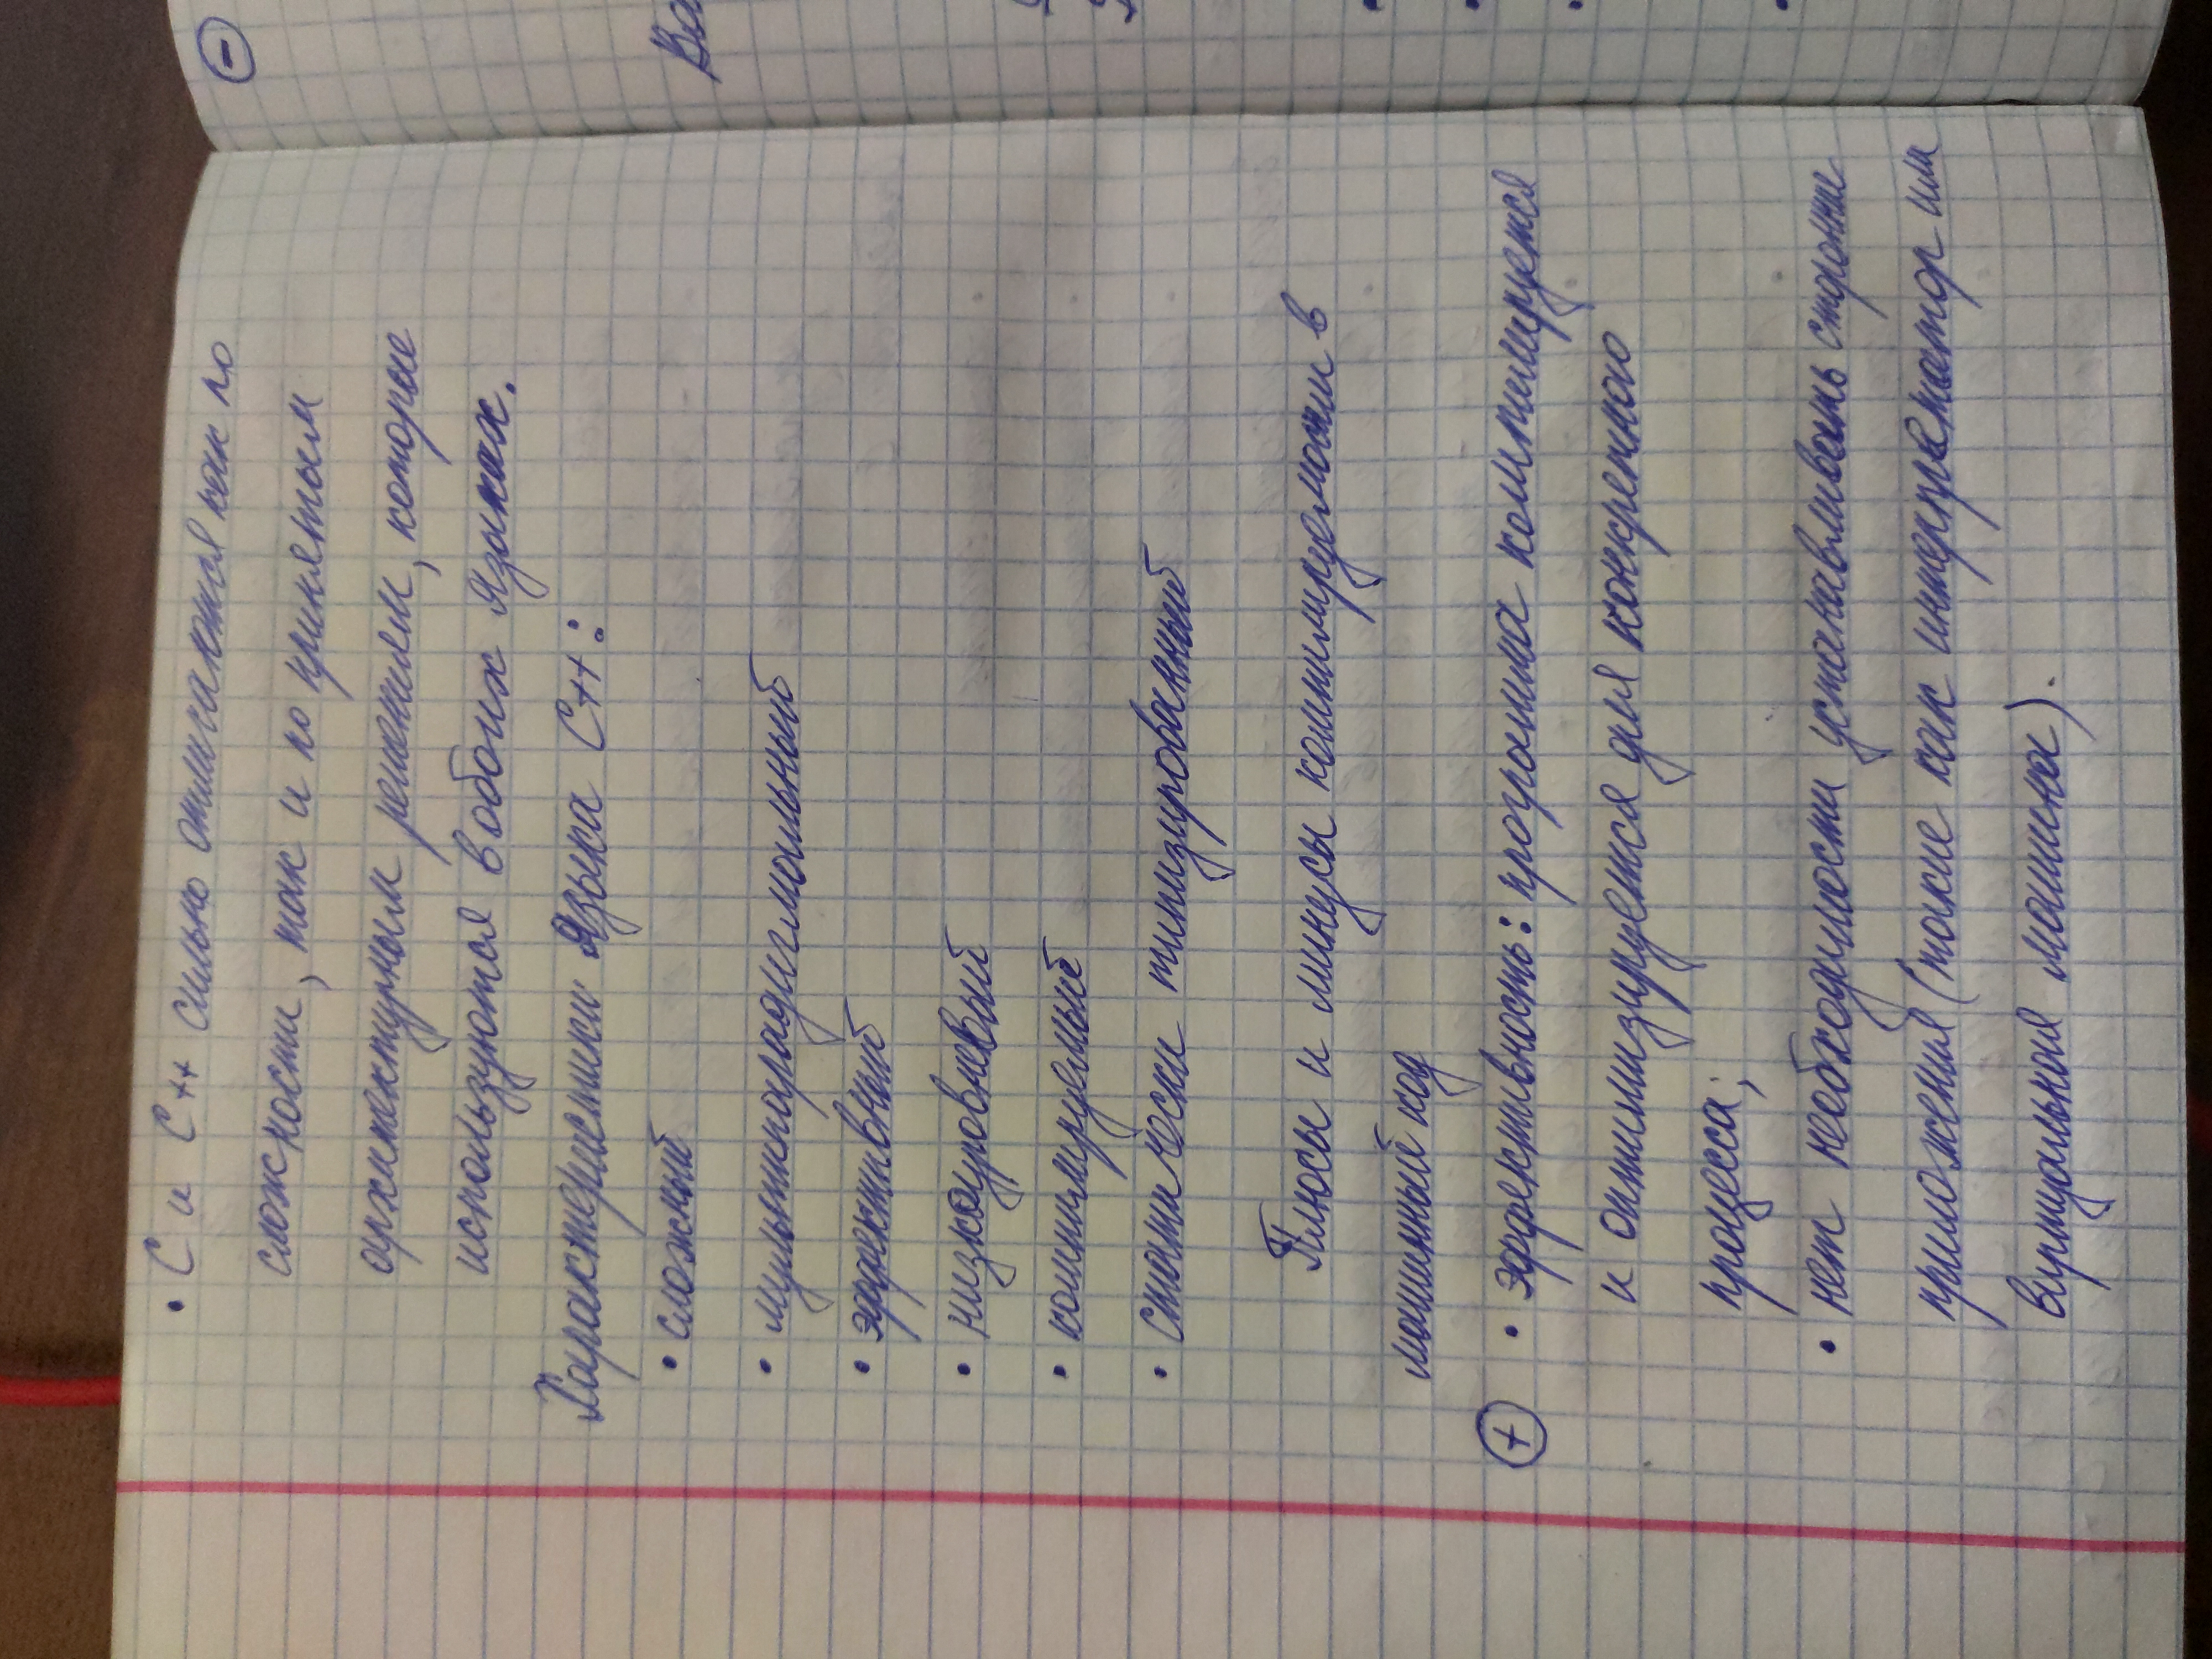 • С и С++ сильно отличаются как по
сложности, так и по принятым
архитектурным решениям, которые
используются в обоих языках.
Характеристики языка С++:
• сложный
• мультипарадигмальный
• эффективный
• низкоуровневый
• компилируемый
• статически типизированный
Плюсы и минусы компилируемости в
машинный код
+ • эффективность: программа компилируется
и оптимизируется для конкретного
процесса;
• нет необходимости устанавливать сторонние
приложения (такие как интерпретатор или
виртуальная машина).
-